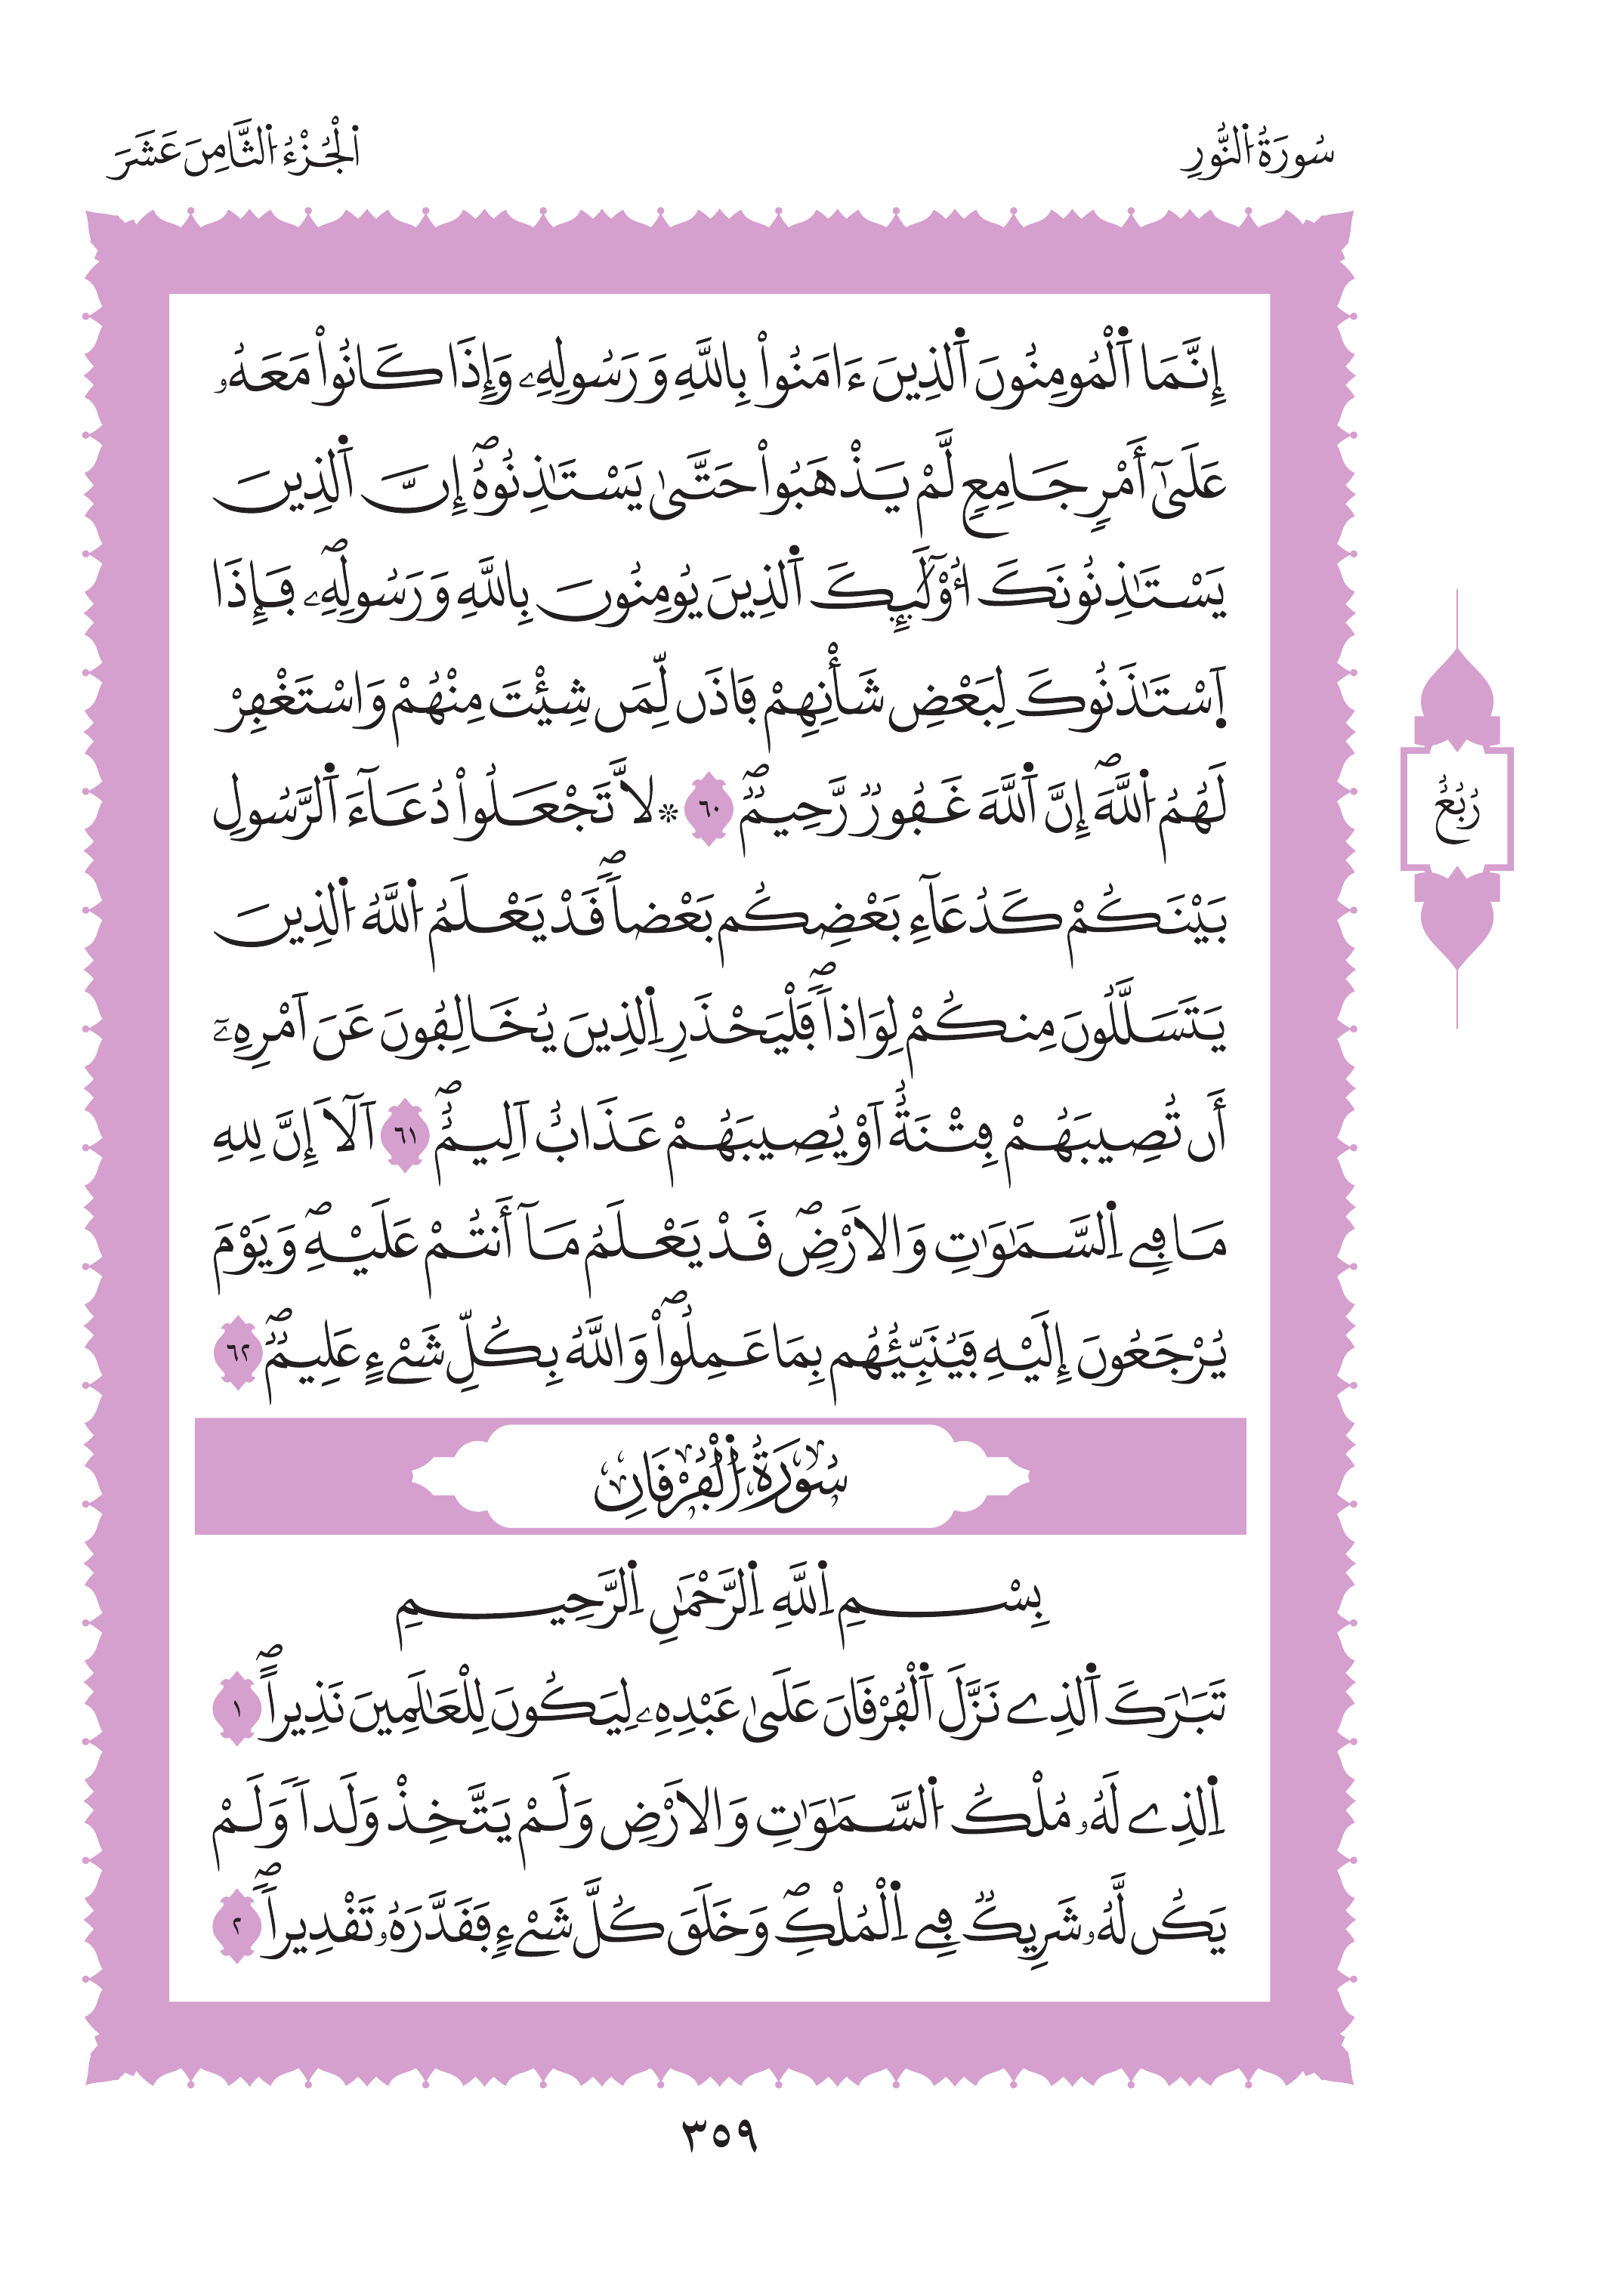 سُورَةُ اُ۬لنُّورِ
اُ۬لْجُزْءُ اُ۬لثَّامِنَ عَشَرَ
إِنَّمَا اَ۬لْمُومِنُونَ اَ۬لذِينَ ءَامَنُواْ بِاللَّهِ وَرَسُولِهِۦ وَإِذَا كَانُواْ مَعَهُۥ
عَلَىٰٓ أَمْرٖ جَامِعٖ لَّمْ يَذْهَبُواْ حَتَّىٰ يَسْتَٰذِنُوهُۖ إِنَّ اَ۬لذِينَ
يَسْتَٰذِنُونَكَ أُوْلَٰٓئِكَ اَ۬لذِينَ يُومِنُونَ بِاللَّهِ وَرَسُولِهِۦۖ فَإِذَا
اَ۪سْتَٰذَنُوكَ لِبَعْضِ شَأْنِهِمْ فَاذَن لِّمَن شِئْتَ مِنْهُمْ وَاسْتَغْفِرْ
لَهُمُ اُ۬للَّهَۖ إِنَّ اَ۬للَّهَ غَفُورٞ رَّحِيمٞۖ ٦٠ ۞لاَّ تَجْعَلُواْ دُعَآءَ اَ۬لرَّسُولِ
بَيْنَكُمْ كَدُعَآءِ بَعْضِكُم بَعْضاٗۖ قَدْ يَعْلَمُ اُ۬للَّهُ اُ۬لذِينَ
يَتَسَلَّلُونَ مِنكُمْ لِوَاذاٗۖ فَلْيَحْذَرِ اِ۬لذِينَ يُخَالِفُونَ عَنَ اَمْرِهِۦٓ
أَن تُصِيبَهُمْ فِتْنَةٌ اَوْ يُصِيبَهُمْ عَذَابٌ اَلِيمٌۖ ٦١ اَلَآ إِنَّ لِلهِ
مَا فِے اِ۬لسَّمَٰوَٰتِ وَالَارْضِۖ قَدْ يَعْلَمُ مَآ أَنتُمْ عَلَيْهِۖ وَيَوْمَ
يُرْجَعُونَ إِلَيْهِ فَيُنَبِّئُهُم بِمَا عَمِلُواْۖ وَاللَّهُ بِكُلِّ شَےْءٍ عَلِيمٞۖ ٦٢
رُبُعُ
سُورَةُ اُ۬لْفُرْقَانِ
بِسْمِ اِ۬للَّهِ اِ۬لرَّحْمَٰنِ اِ۬لرَّحِيمِ
تَبَٰرَكَ اَ۬لذِے نَزَّلَ اَ۬لْفُرْقَانَ عَلَىٰ عَبْدِهِۦ لِيَكُونَ لِلْعَٰلَمِينَ نَذِيراًۖ ١
اِ۬لذِے لَهُۥ مُلْكُ اُ۬لسَّمَٰوَٰتِ وَالَارْضِ وَلَمْ يَتَّخِذْ وَلَداٗ وَلَمْ
يَكُن لَّهُۥ شَرِيكٞ فِے اِ۬لْمُلْكِۖ وَخَلَقَ كُلَّ شَےْءٖ فَقَدَّرَهُۥ تَقْدِيراٗۖ ٢
٣٥٩